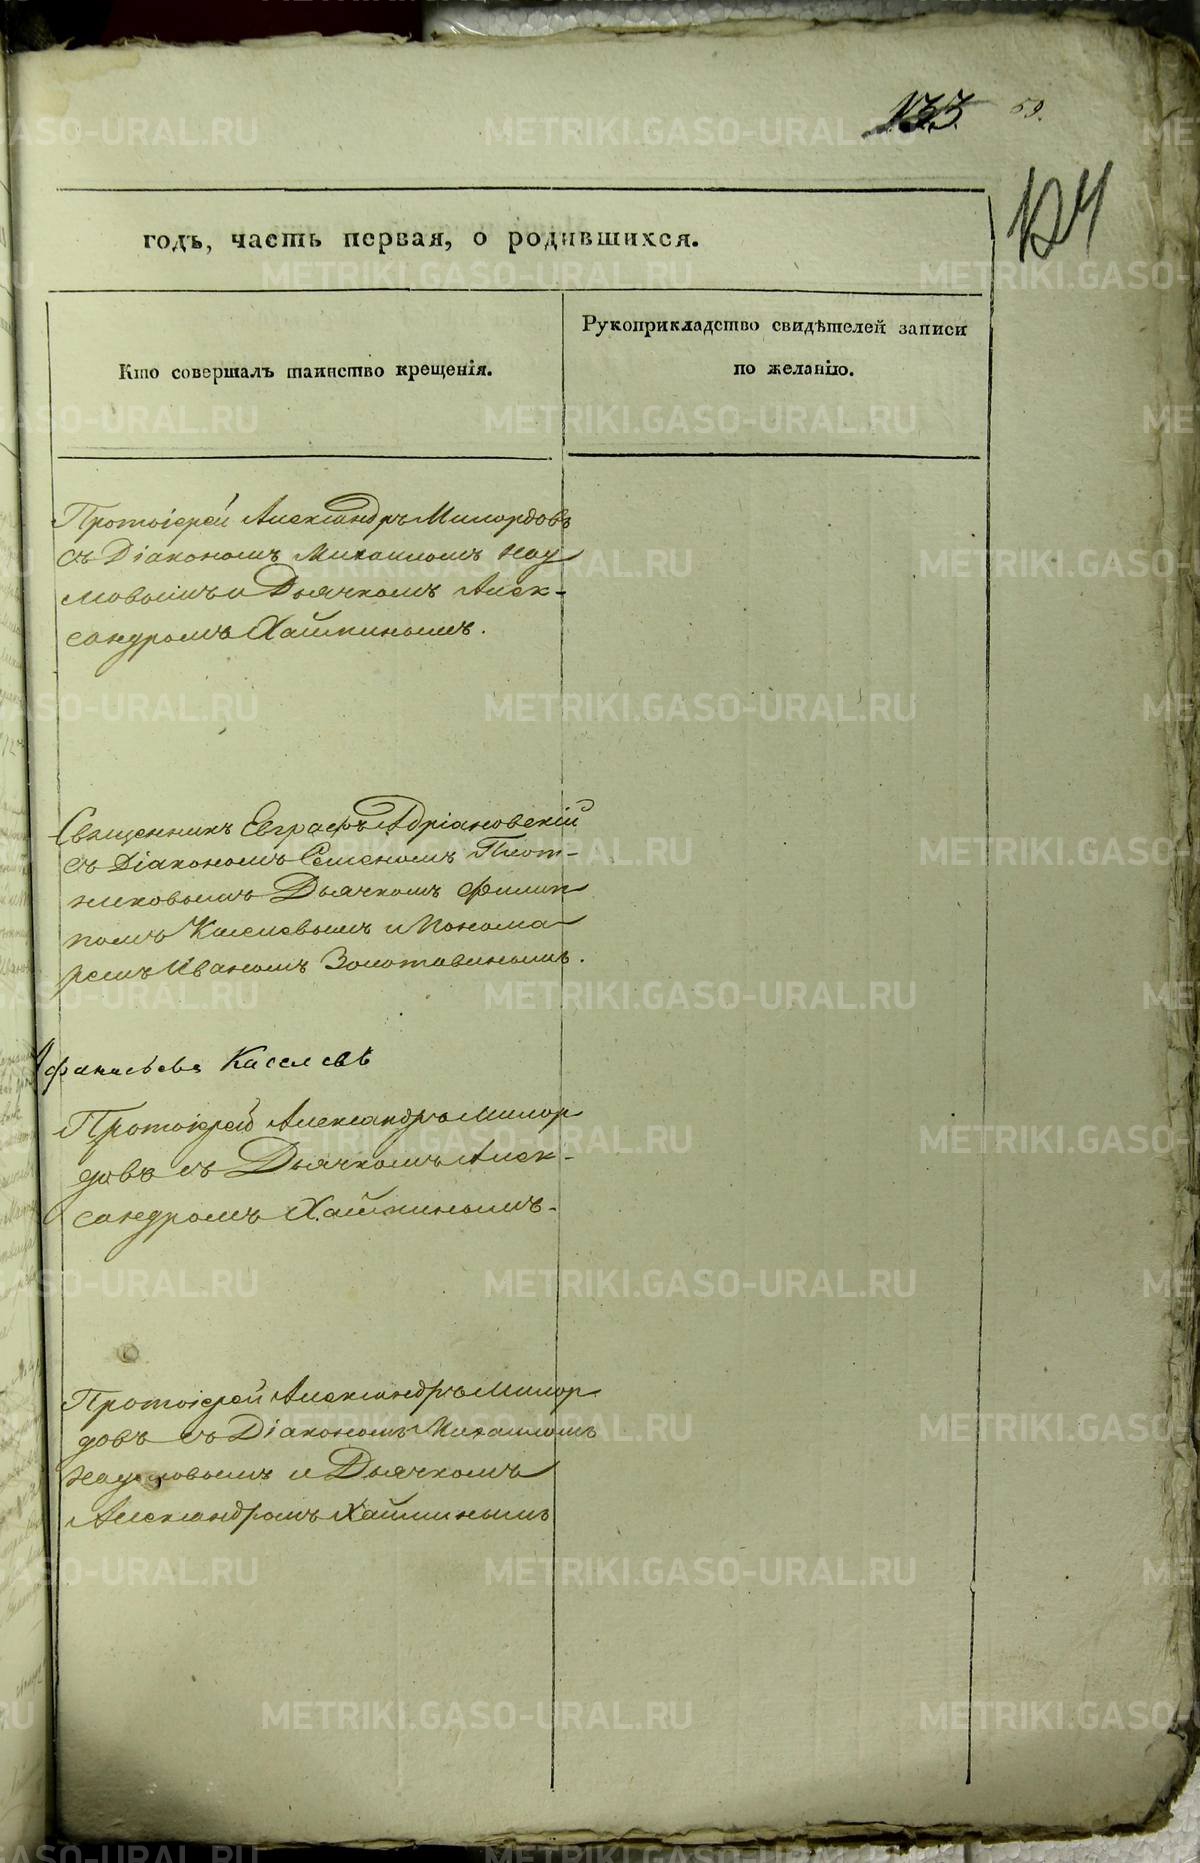 133
59.
124
годъ, часть первая, о родившихся.
Кто совершалъ таинство крещенія.
Рукоприкладство свидѣтелей записи
по желанію.
Протоіерей Александръ Милордовъ
съ Діакономъ Михаиломъ Нау
мовымъ и Дьячкомъ Алек-
сандромъ Хайминымъ.
Священникъ Евграфъ Адріановскій
съ Діакономъ Семеномъ Плот-
никовымъ Дьячкомъ Филип
помъ Киселевымъ и Понома
ремъ Иваномъ Золотавинымъ.
Киселевъ
Протоіерей Александръ Милор
довъ съ Дьячкомъ Алек-
сандромъ Хайминымъ.
Протоіерей Александръ Милор
довъ съ Діакономъ Михаиломъ
Наумовымъ и Дьячкомъ
Александромъ Хайминымъ
METRIKI.GASO-URAL.RU